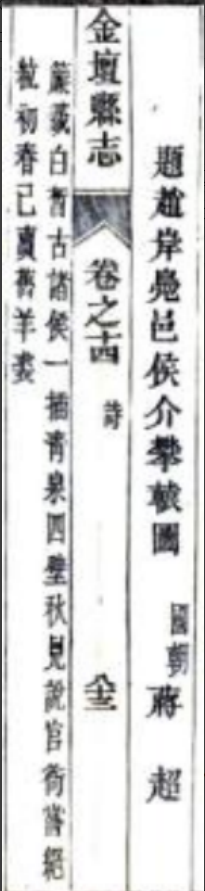 題趙岸鳧邑侯介攀轅圖 國朝 蔣超
金壇縣志 卷之十四 詩 八十三
白皙古諸侯一插青泉四壁秋見說官衙嘗絕
粒初春已賣舊羊裘